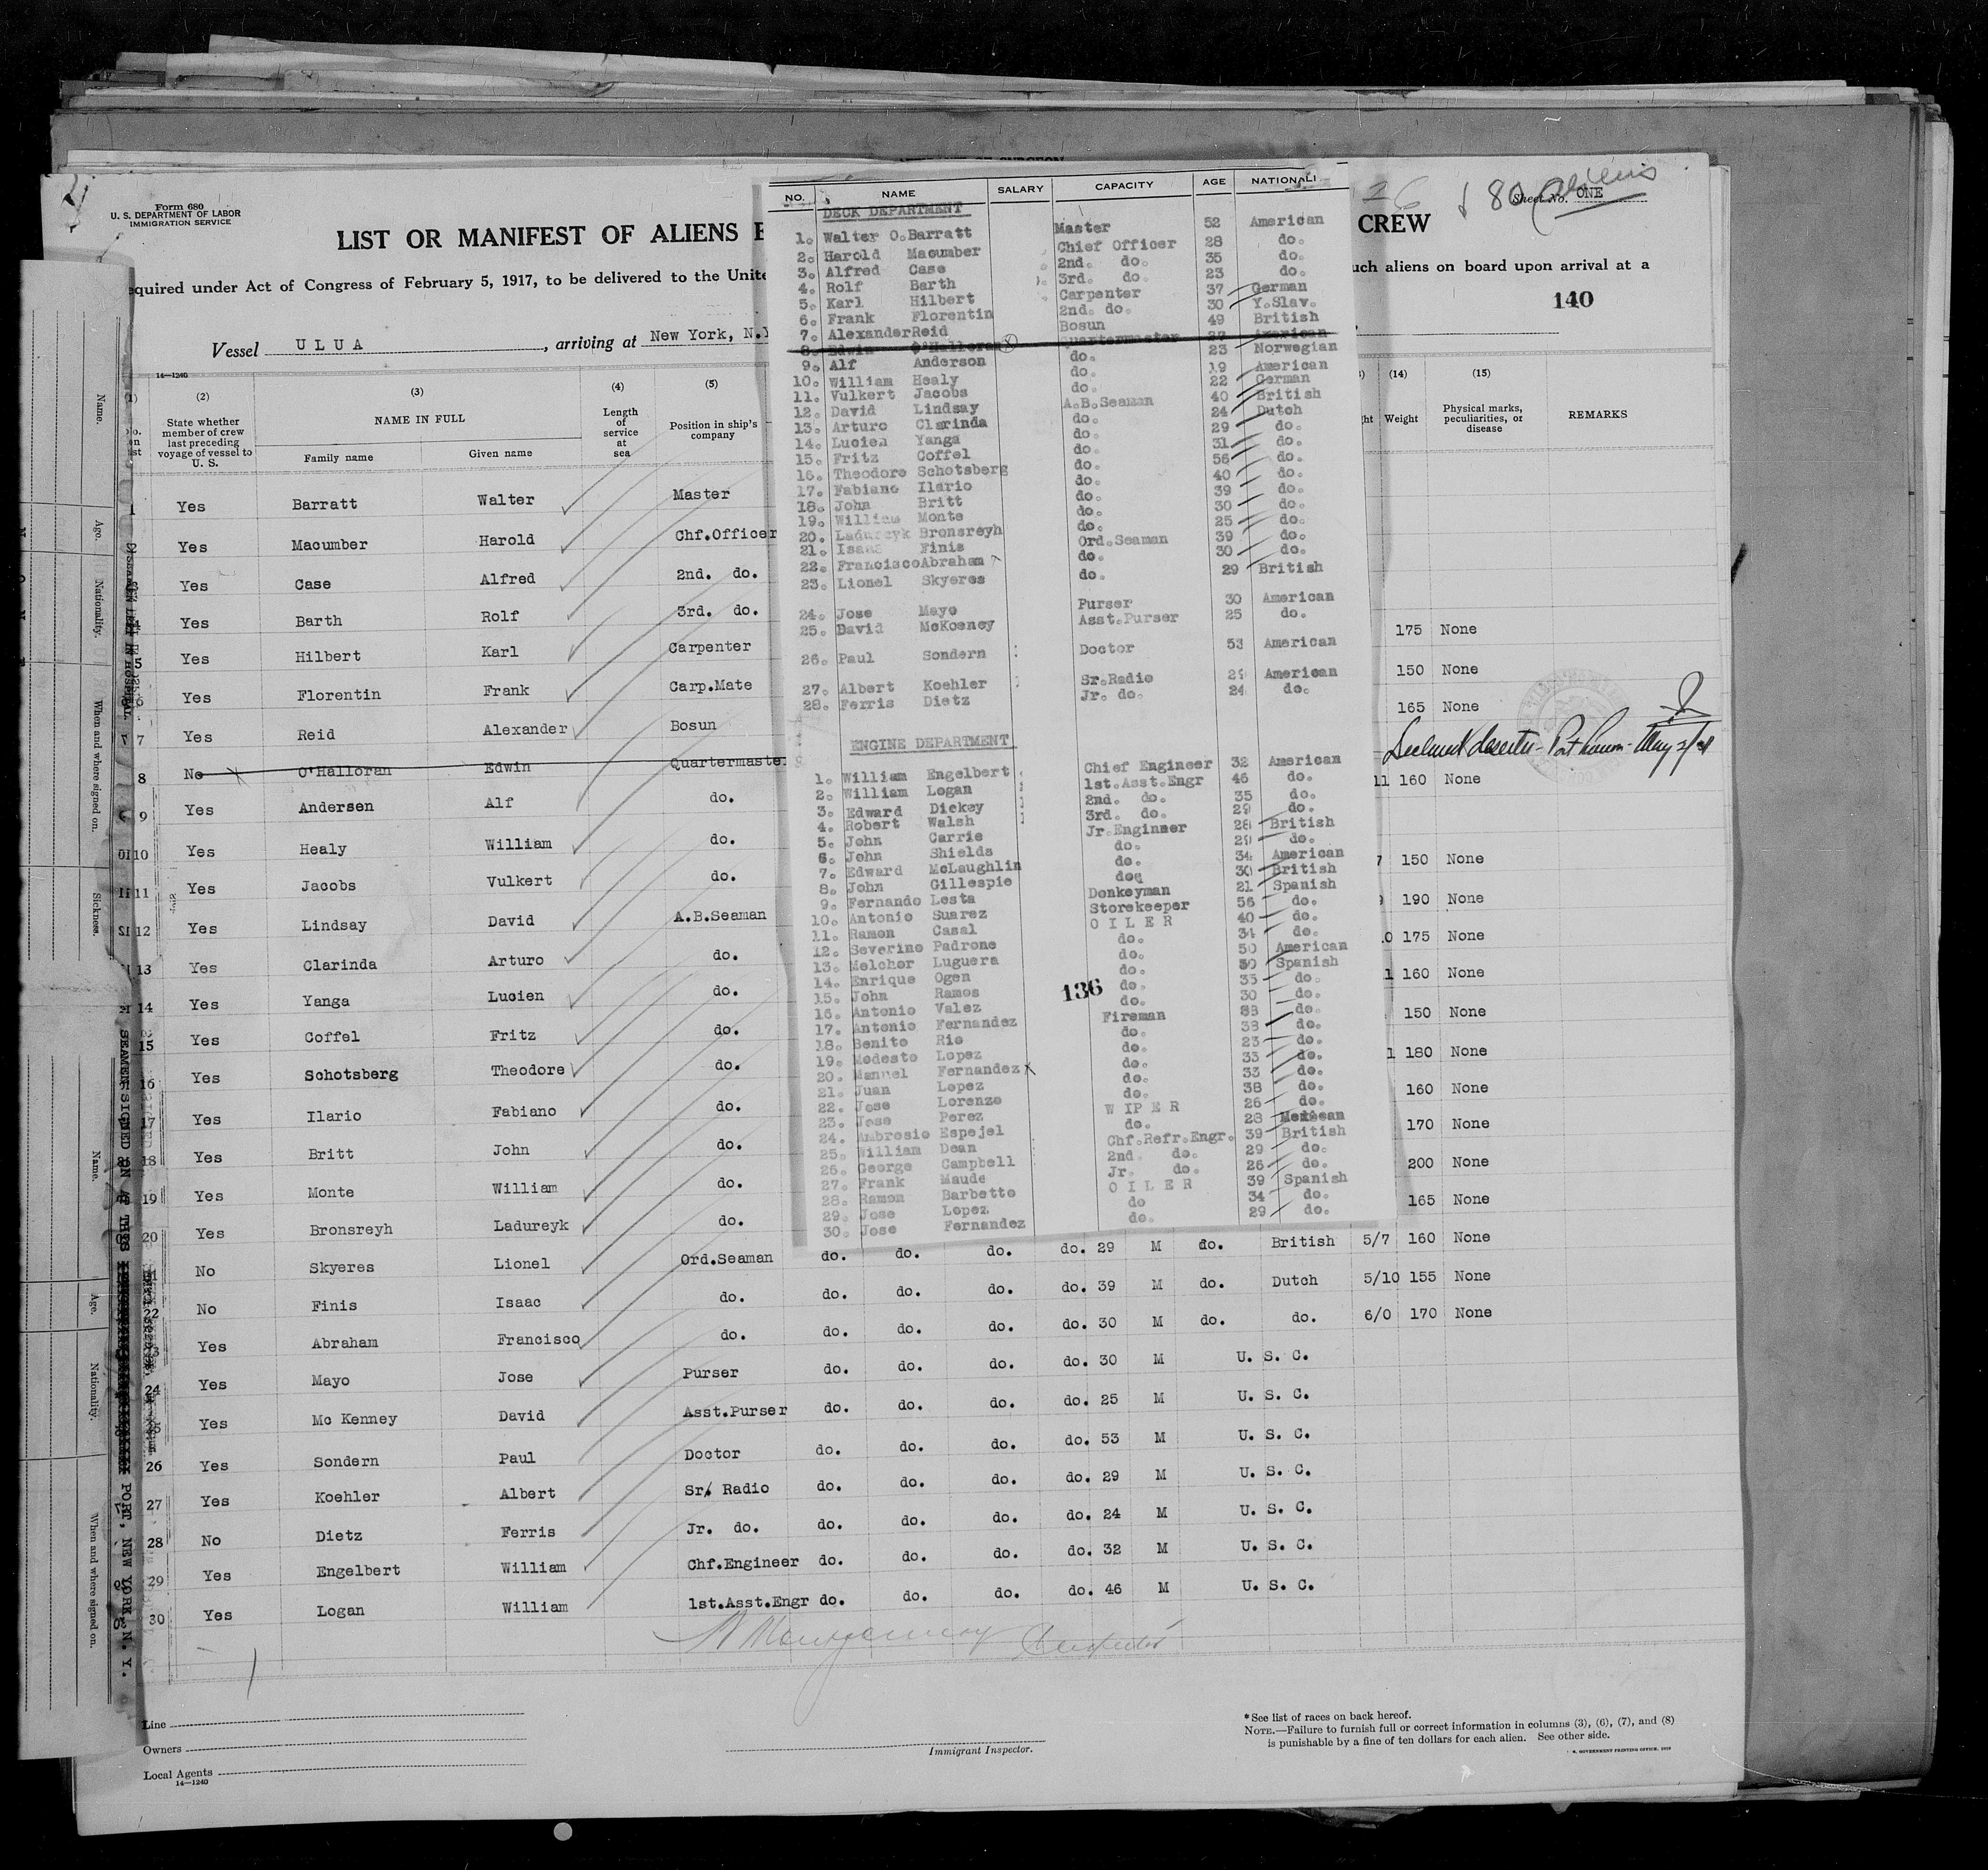 Form 680
U. S. DEPARTMENT OF LABOR
IMMIGRATION SERVICE
80 Aliens
Sheet No. ONE
LIST OR MANIFEST OF ALIENS E
CREW
quired under Act of Congress of February 5, 1917, to be delivered to the Unite
uch aliens on board upon arrival at a
140
Vessel ULUA, arriving at New York, N.Y
14—1240
(2) (3) (4) (5) (14) (15)
State whether member of crew last preceding voyage of vessel to U. S.
NAME IN FULL
Family name Given name
Length of service at sea
Position in ship's company
Weight
Physical marks, peculiarities, or disease
REMARKS
1 Yes Barratt Walter Master
Yes Macumber Harold Chf.Officer
Yes Case Alfred 2nd. do.
4 Yes Barth Rolf 3rd. do.
5 Yes Hilbert Karl Carpenter 175 None
6 Yes Florentin Frank Carp.Mate 150 None
7 Yes Reid Alexander Bosun 165 None
8 No O'Halloran Edwin Quartermaste Declared deserter
9 Yes Andersen Alf do. 11 160 None
10 Yes Healy William do.
11 Yes Jacobs Vulkert do. 150 None
12 Yes Lindsay David A.B.Seaman 190 None
13 Yes Clarinda Arturo do. 175 None
14 Yes Yanga Lucien do. 160 None
15 Yes Coffel Fritz do. 150 None
16 Yes Schotsberg Theodore do. 180 None
17 Yes Ilario Fabiano do. 160 None
18 Yes Britt John do. 170 None
19 Yes Monte William do. 200 None
20 Yes Bronsreyh Ladureyk do. 165 None
No Skyeres Lionel Ord.Seaman do. do. do. do. 29 M do. British 5/7 160 None
22 No Finis Isaac do. do. do. do. do. 39 M do. Dutch 5/10 155 None
Yes Abraham Francisco do. do. do. do. do. 30 M do. do. 6/0 170 None
24 Yes Mayo Jose Purser do. do. do. do. 30 M U. S. C.
Yes Mc Kenney David Asst.Purser do. do. do. do. 25 M U. S. C.
26 Yes Sondern Paul Doctor do. do. do. do. 53 M U. S. C.
27 Yes Koehler Albert Sr. Radio do. do. do. do. 29 M U. S. C.
28 No Dietz Ferris Jr. do. do. do. do. do. 24 M U. S. C.
29 Yes Engelbert William Chf.Engineer do. do. do. do. 32 M U. S. C.
30 Yes Logan William 1st.Asst.Engr do. do. do. do. 46 M U. S. C.
Line
Owners
Local Agents
14—1240
Immigrant Inspector.
*See list of races on back hereof.
NOTE.—Failure to furnish full or correct information in columns (3), (6), (7), and (8)
is punishable by a fine of ten dollars for each alien. See other side.
NO. NAME SALARY CAPACITY AGE NATIONALI
DECK DEPARTMENT
1. Walter O.Barratt Master 52 American
2. Harold Macumber Chief Officer 28 do.
3. Alfred Case 2nd. do. 35 do.
4. Rolf Barth 3rd. do. 23 do.
5. Karl Hilbert Carpenter 37 German
6. Frank Florentin 2nd. do. 30 Y.Slav.
7. Alexander Reid Bosun 49 British
8. Edwin O'Halloran Quartermaster 27 American
9. Alf Anderson do. 23 Norwegian
10. William Healy do. 19 American
11. Vulkert Jacobs do. 22 German
12. David Lindsay A.B.Seaman 40 British
13. Arturo Clarinda do. 24 Dutch
14. Lucien Yanga do. 29 do.
15. Fritz Coffel do. 31 do.
16. Theodore Schotsberg do. 56 do.
17. Fabiano Ilario do. 40 do.
18. John Britt do. 39 do.
19. William Monte do. 30 do.
20. Ladureyk Bronsreyh do. 25 do.
21. Isaac Finis Ord.Seaman 39 do.
22. Francisco Abraham do. 30 do.
23. Lionel Skyeres do. 29 British
24. Jose Mayo Purser 30 American
25. David McKceney Asst.Purser 25 do.
26. Paul Sondern Doctor 53 American
27. Albert Koehler Sr.Radio 29 American
28. Ferris Dietz Jr. do. 24 do.
ENGINE DEPARTMENT
1. William Engelbert Chief Engineer 32 American
2. William Logan 1st.Asst.Engr 46 do.
3. Edward Dickey 2nd. do. 35 do.
4. Robert Walsh 3rd. do. 29 do.
5. John Carrie Jr.Engineer 28 British
6. John Shields do. 29 do.
7. Edward McLaughlin do. 34 American
8. John Gillespie do. 30 British
9. Fernando Lesta Donkeyman 21 Spanish
10. Antonio Suarez Storekeeper 56 do.
11. Ramon Casal OILER 40 do.
12. Severino Padrone do. 34 do.
13. Melchor Luguera do. 50 American
14. Enrique Ogen do. 30 Spanish
15. John Ramos do. 35 do.
16. Antonio Valez do. 30 do.
17. Antonio Fernandez Fireman 38 do.
18. Benito Rio do. 38 do.
19. Modesto Lopez do. 23 do.
20. Manuel Fernandez do. 33 do.
21. Juan Lopez do. 33 do.
22. Jose Lorenzo do. 38 do.
23. Jose Perez WIPER 26 do.
24. Ambrosio Espejel do. 28 Mexican
25. William Dean Chf.Refr.Engr. 39 British
26. George Campbell 2nd. do. 29 do.
27. Frank Maude Jr. do. 26 do.
28. Ramon Barbetto OILER 39 Spanish
29. Jose Lopez do 34 do.
30. Jose Fernandez do. 29 do.
136
Name.
Age.
Nationality.
When and where signed on.
Sickness.
Name.
Age.
Nationality.
When and where signed on.
PORT, NEW YORK N. Y.